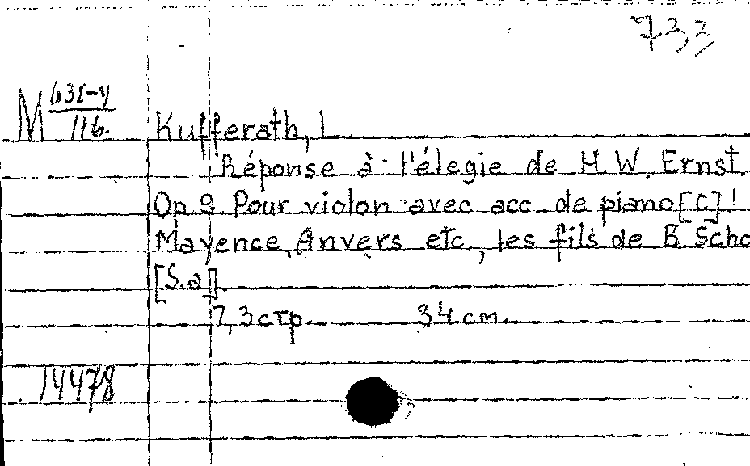 733
M 631-y/116.
Kufferath, L
Réponse à l'élegie de H. W. Ernst.
Op 9. Pour violon avec acc. de piano [C]!
Mayence, Anvers etc., les fils de B Scho
[S.a].
7,3 стр. 34 cm.
14478